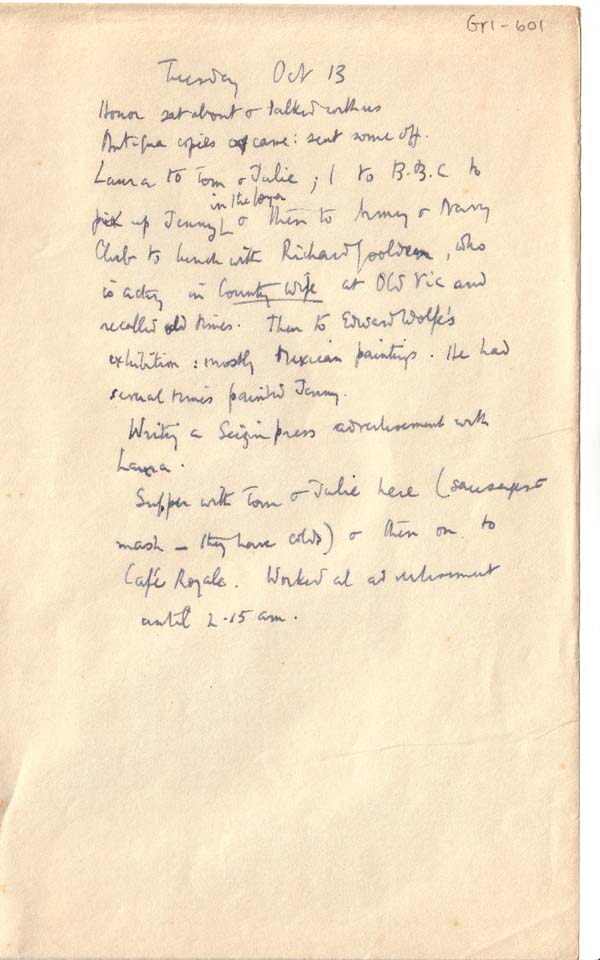 Gr1-601
Tuesday Oct 13
Honor sat about & talked with us
Antigua copies came: sent some off.
Laura to Tom & Julie; I to B.B.C to
in the foyer
pick up Jenny & then to Army & Navy
Club to lunch with Richard Goolden, who
is acting in Country Wife at Old Vic and
recalled old times. Then to Edward Wolfe's
exhibition: mostly Mexican paintings. He had
several times painted Jenny.
Writing a Seizin press advertisement with
Laura.
Supper with Tom & Julie here (sausages &
mash – they have colds) & then on to
Café Royale. Worked at advertisement
until 2-15 am.